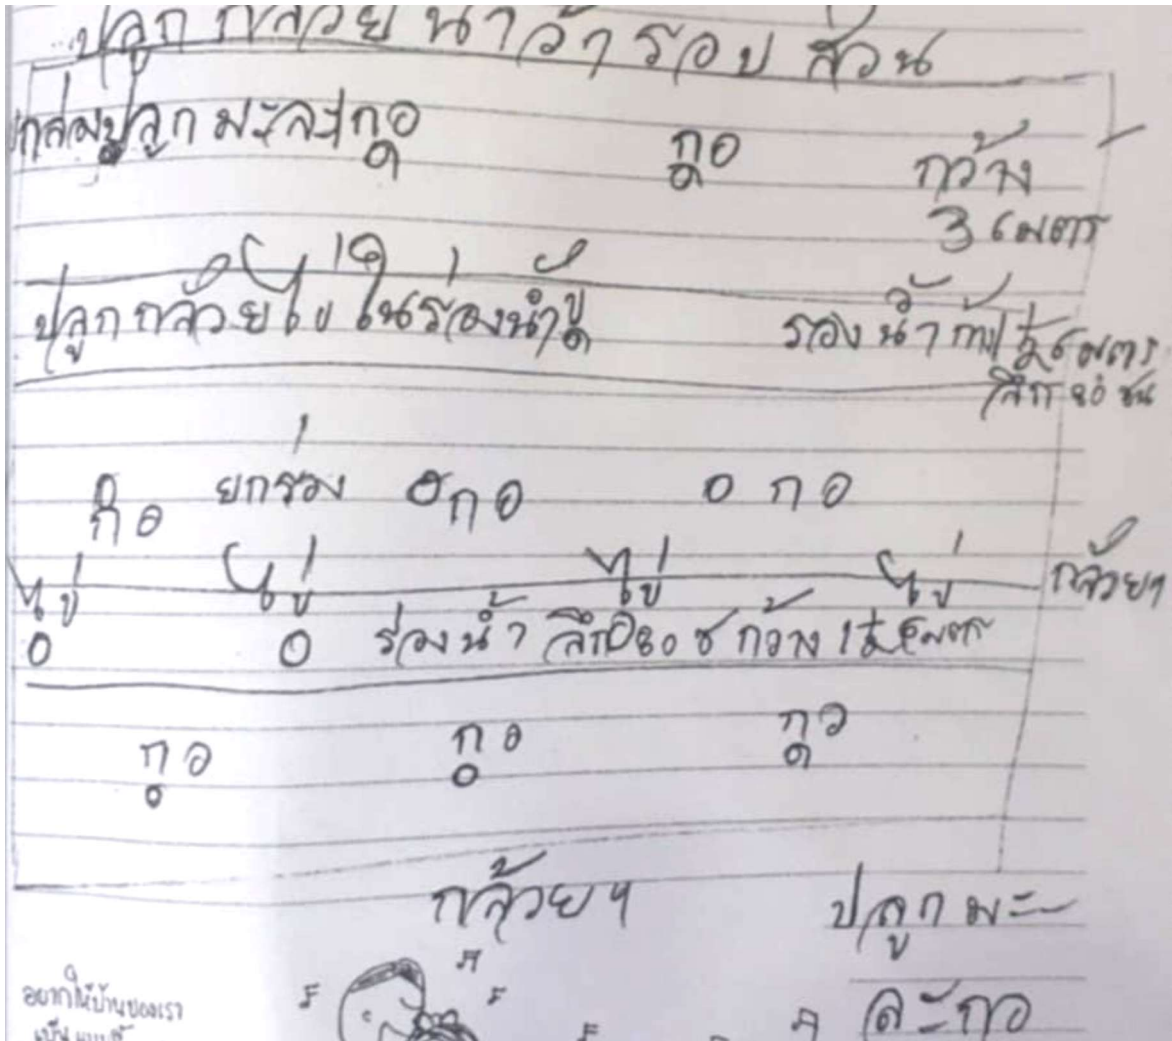 ปลูกกล้วยน้ำว้ารอบส่วน
ปลูกมะละกอ กอ กว้าง
3 เมตร
ปลูกกล้วยไข่ในร่องน้ำ ร่องน้ำ เมตร
ลึก 80 ซม
กอ ยกร่อง กอ กอ
ไข่ ไข่ ไข่ ไข่ กล้วยๆ
ร่องน้ำ ลึก 80 ซ กว้าง เมตร
กอ กอ กอ
กล้วยๆ ปลูกมะ
ละกอ
อยากให้บ้านของเรา